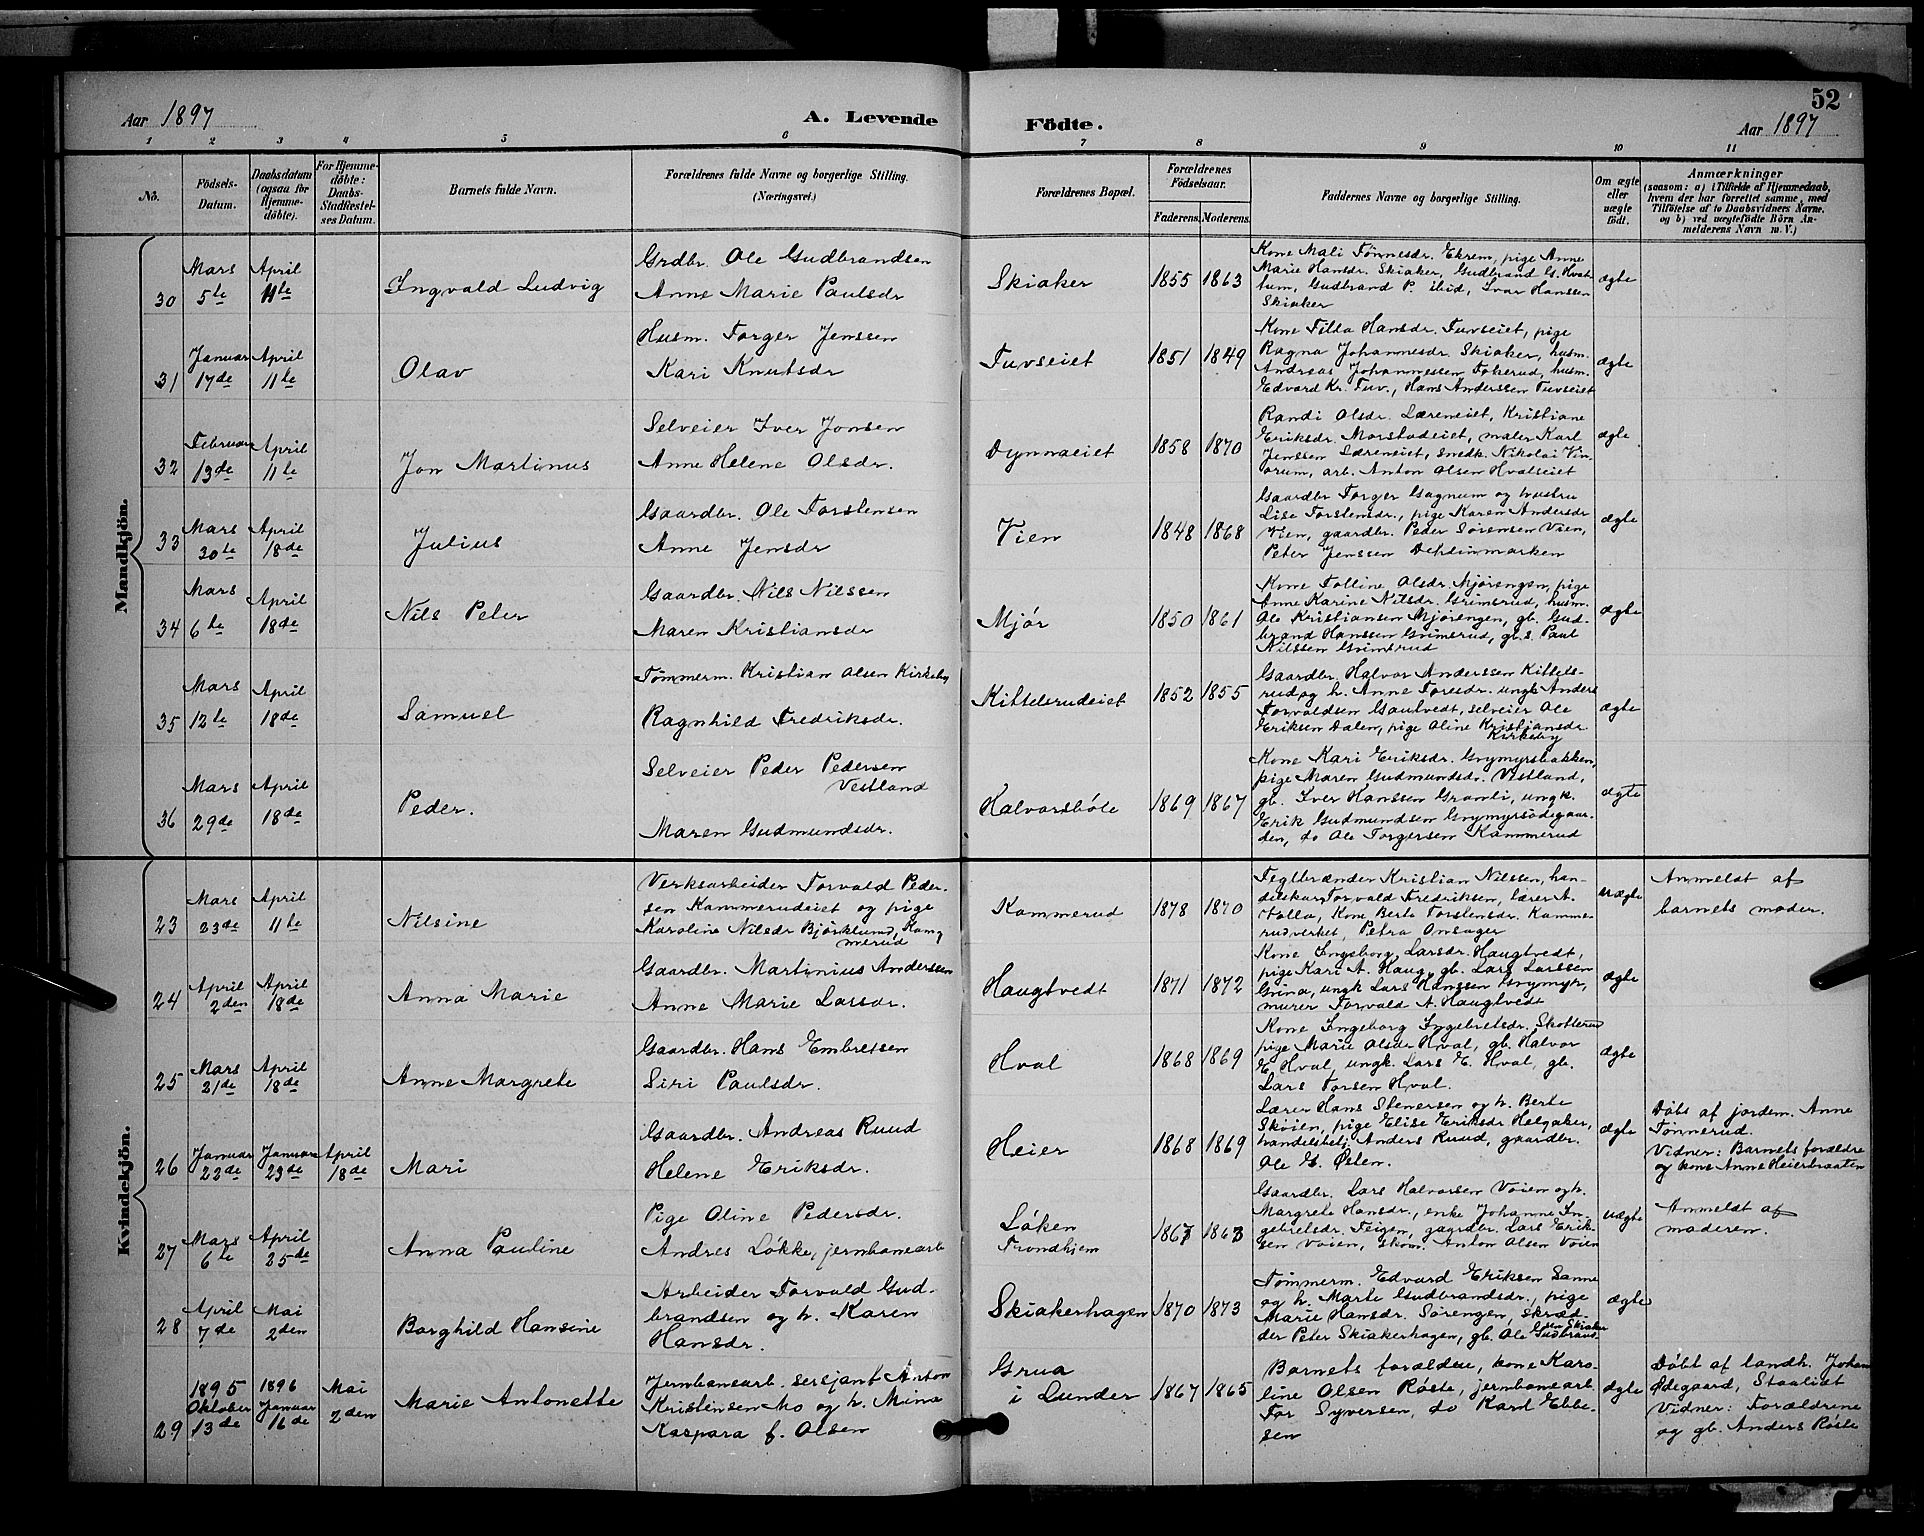 52
Aar 1897
A. Levende Födte.
Aar 1897
1 2 3 4 5 6 7 8 9 10 11
No.
Födsels-Datum.
Daabsdatum (ogsaa for Hjemme-döbte).
For Hjemme-döbte: Daabs-Stadfæstel-ses Datum.
Barnets fulde Navn.
Forældrenes fulde Navne og borgerlige Stilling.
(Næringsvei.)
Forældrenes Bopæl.
Forældrenes Födselsaar.
Faderens. Moderens.
Faddernes Navne og borgerlige Stilling.
Om ægte eller uægte födt.
Anmærkninger
(saasom: a) i Tilfælde af Hjemmedaab, hvem der har forrettet samme, med Tilföielse af to Daabsvidners Navne, og b) ved uægtefödte Börn Anmelderens Navn m. V.)
Mandkjön.
30
Mars 5te
April 11te
Ingvald Ludvig
Grdbr. Ole Gudbrandsen
Anne Marie Paulsdr
Skiaker
1855 1863
Kone Mali Tønnesdr. Ekrem, pige Anne
Marie Hansdr. Skiaker, Gudbrand G. Hvat-
tum, Gudbrand P. ibid, Ivar Hanssen
Skiaker
ægte
31
Januar 17de
April 11te
Olav
Husm. Torger Jenssen
Kari Knutsdr
Tuvseiet
1851 1849
Kone Tilla Hansdr. Tuvseiet, pige
Ragna Johannesdr. Skiaker, husm.
Andreas Johannessen Tokerud, husm.
Edvard Kr. Tuv., Hans Anderssen Tuvseiet
ægte
32
Februar 13de
April 11te
Jon Martinus
Selveier Iver Jonsen
Anne Helene Olsdr.
Dynnaeiet
1858 1870
Randi Olsdr. Læreneiet, Kristiane
Eriksdr. Morstadeiet, maler Karl
Jenssen Læreneiet, smedk. Nikolai Vin-
orum, arb. Anton Olsen Hvalseiet
ægte
33
Mars 30te
April 18de
Julius
Gaardbr. Ole Torstensen
Anne Jensdr
Vien
1848 1868
Gaardbr Torger Gagnum og hustru
Lise Torstensdr., pige Karen Andersdr
Vien, gaardbr. Peder Sørensen Vien,
Peter Jenssen Dehlinmarken
ægte
34
Mars 6te
April 18de
Nils Peter
Gaardbr. Nils Nilssen
Maren Kristiansdr
Mjør
1850 1861
Kone Tolline Olsdr Mjørengen, pige
Anne Karine Nilsdr. Grimsrud, husm.
Ole Kristiansen Mjørengen, gb. Gud-
brand Hanssen Grimsrud, gb.s. Paul
Nilssen Grimsrud
ægte
35
Mars 12te
April 18de
Samuel
Tømmerm. Kristian Olsen Kirkeby
Ragnhild Fredriksdr.
Kittelsrudeiet
1852 1855
Gaardbr. Halvor Anderssen Kittels-
rud og h. Anne Toresdr. ungk Anders
Torvaldsen Gautvedt, selveier Ole
Eriksen Dalen, pige Oline Kristiansdr
Kirkeby
ægte
36
Mars 29de
April 18de
Peder.
Selveier Peder Pedersen
Vestland
Maren Gudmundsdr.
Halvorsbøle
1869 1867
Kone Kari Eriksdr. Grymyrsbakken,
pige Maren Gudmundsdr. Vestland,
gb. Iver Hanssen Granli, ungk.
Erik Gudmundsen Grymyrsødegaar-
den, do Ole Torgersen Kammerud
ægte
Kvindekjön.
23
Mars 23de
April 11te
Nilsine
Verksarbeider Torvald Peder-
sen Kammerudeiet og pige
Karoline Nilsdr Bjørklund, Kam-
merud
Kammerud
1878 1870
Teglbrænder Kristian Nilssen, han-
delskar Torvald Fredriksen, lærer A.
Holla, Kone Berte Torstensdr. Kamme-
rudverket, Petra Onsager
uægte
Anmeldt af
barnets moder.
24
April 2den
April 18de
Anna Marie
Gaardbr. Martinius Anderssen
Anne Marie Larsdr.
Haugtvedt
1871 1872
Kone Ingeborg Larsdr. Haugtvedt,
pige Kari A. Haug, gb. Lars Larssen
Grina, ungk Lars Hanssen Grymyr,
murer Torvald A. Haugtvedt
ægte
25
Mars 21de
April 18de
Anne Margrete
Gaardbr. Hans Embretsen
Siri Paulsdr.
Hval
1868 1869
Kone Ingeborg Ingebretsdr. Skotterud
pige Marie Olsdr Hval, gb. Halvor
E. Hval, ungk. Lars E. Hval, gb.
Lars Torsen Hval.
ægte
26
Januar 22de
Januar 23de
April 18de
Mari
Gaardbr. Andreas Ruud
Helene Eriksdr.
Heier
1868 1869
Lærer Hans Stenersen og h. Berte
Skøien, pige Elise Eriksdr Helgaker,
handelsbetj. Anders Ruud, gaardbr.
Ole E. Østen.
ægte
Døbt af jordem. Anne
Tønnerud.
Vidner: Barnets forældre
og kone Anne Heierbraaten
27
Mars 6te
April 25de
Anna Pauline
Pige Oline Pedersdr.
Andres Løkke, jernbanearb
Løken
Trondhjem
1867 1863
Gaardbr. Lars Halvorsen Vøien og h.
Margrete Hansdr., enke Johanne In-
gebretsdr. Teigen, gaardbr. Lars Erik-
sen Vøien, skom. Anton Olsen Vøien
uægte
Anmeldt af
moderen.
28
April 7de
Mai 2den
Borghild Hansine
Arbeider Torvald Gud-
brandsen og h. Karen
Hansdr.
Skiakerhagen
1870 1873
Tømmerm. Edvard Eriksen Sanne
og h. Marte Gudbrandsdr., pige
Marie Hansdr. Sørengen, skræd-
der Peter Skiakerhagen, gb. Ole Gudbrand-
sen Skiaker
ægte
29
1895 Oktober 13de
1896 Januar 16de
Mai 2den
Marie Antonette
Jernbanearb. sersjant Anton
Kristensen Mo og h. Mina
Kaspara f. Olsen
Grua
i Lunder
1867 1865
Barnets forældre, kone Karo-
line Olsen Røste, jernbanearb.
Tor Syversen, do Karl Ebbe-
sen
ægte
Døbt af landh. Johan
Ødegaard,
Vidner: Forældrene
og gb. Anders Røste